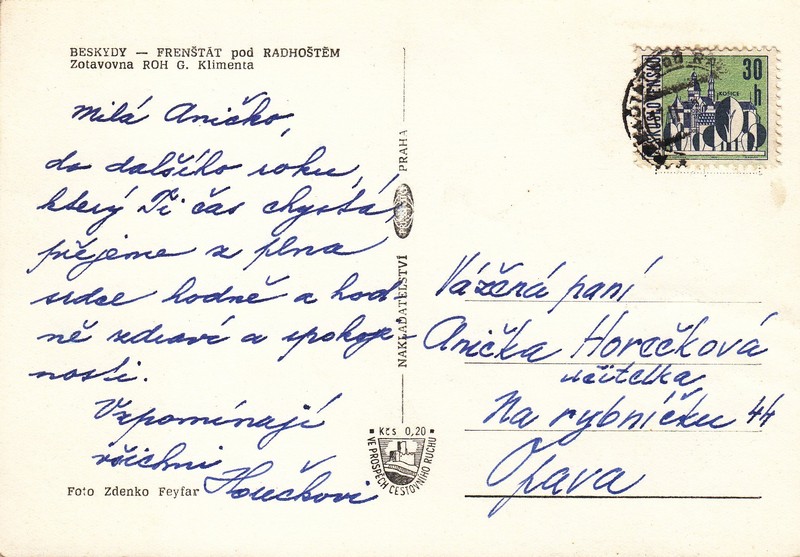 BESKYDY — FRENŠTÁT pod RADHOŠTĚM
Zotavovna ROH G. Klimenta
Milá Aničko,
do dalšího roku,
který Ti čas chystá,
přejeme z plna
srdce hodně a hod
ně zdraví a spokoje-
nosti.
Vzpomínají
všichni
Horečkovi
Foto Zdenko Feyfar
NAKLADATELSTVÍ
PRAHA
Kčs 0,20
VE PROSPĚCH CESTOVNÍHO RUCHU
30
h
KOŠICE
ČESKOSLOVENSKO
Vážená paní
Anička Horečková
učitelka
Na rybníčku 44
Opava